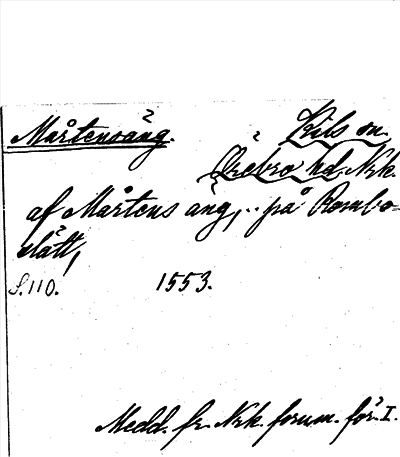 Mårtensäng. Kils sn.
Örebro hd, Nrk.
af Mårtens äng, .. på Rombo-
slätt,
S. 110. 1553.
Medd. fr. Nrk. fornm. för. I.